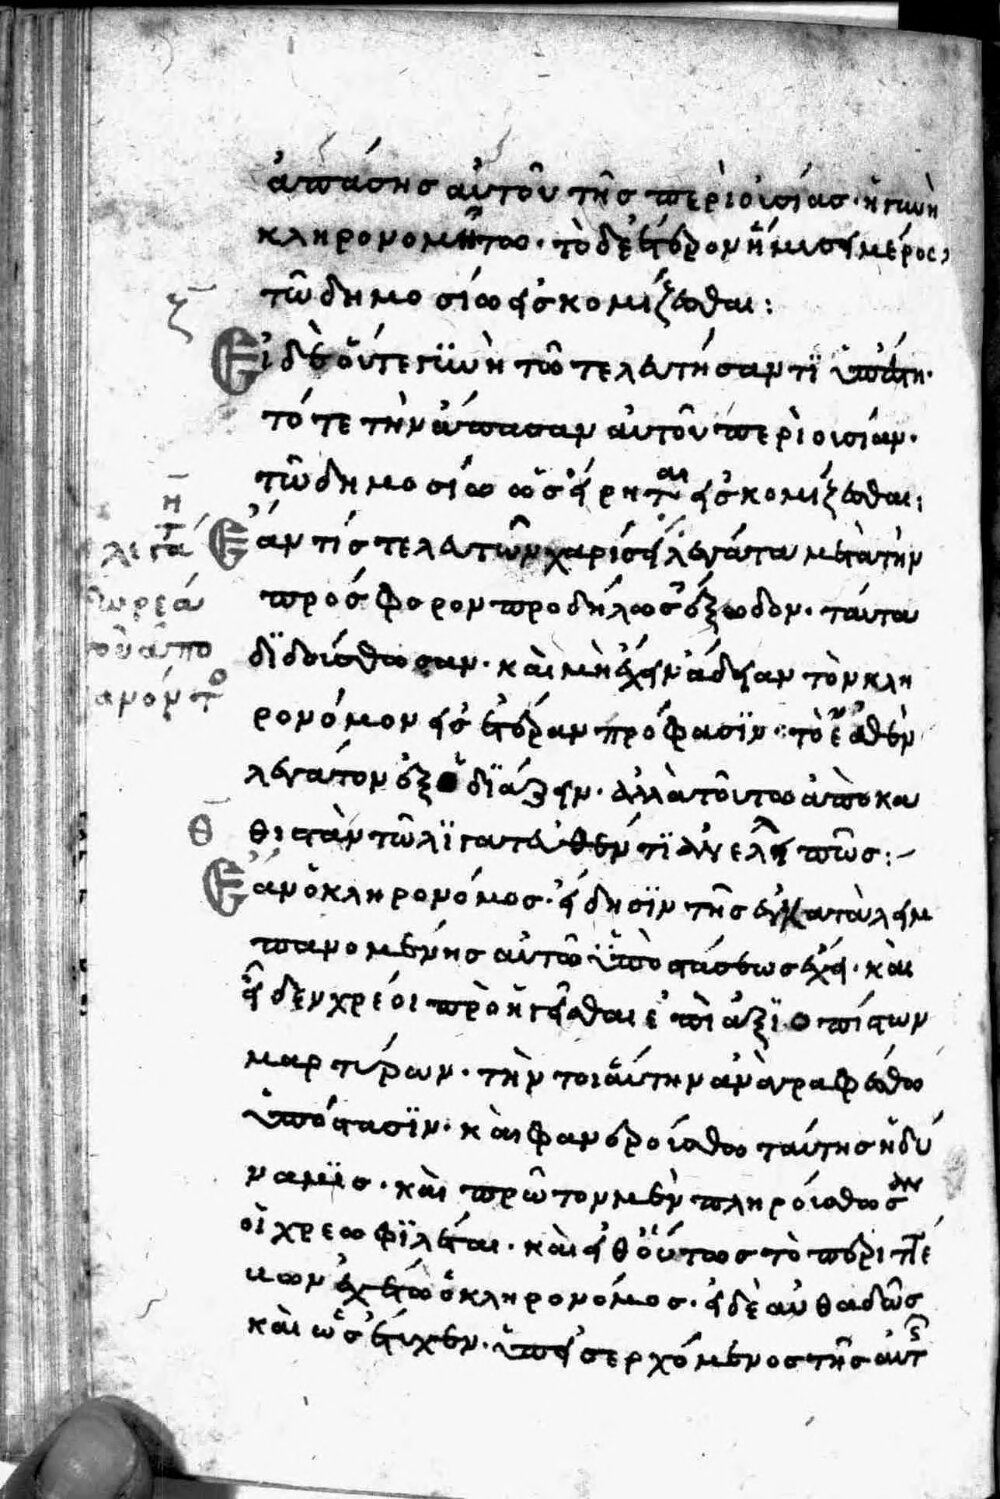 ἁπάσης αὐτοῦ τῆς περιουσίας· ἡ γυνὴ
κληρονομήτω· τὸ δὲ ἕτερον ἥμισυ μέρος,
ζ
τῶ δημοσίω εἰσκομίζεσθαι:
Εἰ δὲ οὔτε γϋνὴ τῶ τελευτήσαντϊ ὑπάτη·
τότε τὴν ἅπασαν αὐτοῦ περιουσίαν·
τῶ δημοσίω ὡς εἴρηται εἰσκομίζεσθαι:
η
Ἐάν τίς τελευτῶν χαρίσει λεγάτα μετὰ τὴν
πρόσφορον προδήλως ἔξωδον· ταῦτα
δϊδοίσθωσαν· καὶ μὴ ἔχειν ἄδειαν τὸν κλη
ρονόμον εἰς ἑτέραν πρόφασϊν· τὸ ἐθὲν
λεγάτον ἐξοδϊάζειν· ἀλλὰ τοῦτω ἀποκα
θ
θιστὰν τῶ λϊγατευθέντϊ ἀνελλειπῶς:
Ἐὰν ὁ κληρονόμος· εἴδησϊν τῆς ἐγκαταλειμ
πανομένης αὐτῶ ὑποστάσεως ἔχει· καὶ
εἰ δεν χρέοι προηγεῖσθαι ἐπὶ ἀξϊοπίστων
μαρτύρων· τὴν τοιαύτην ἀναγραφέσθω
ὑπόστασϊν· καὶ φανεροίσθω ταύτης ἡ δύ
ναμϊς· καὶ πρῶτον μὲν πληροίσθωσαν
οἱ χρεωφϊλέται· καὶ εἶθ' οὕτως τὸ περιττέ
υων ἐχέτω ὁ κληρονόμος· εἰ δὲ αὐθαδῶς
καὶ ὡς ἔτυχεν· ὑπεισερχόμενος τῆς αὐτ